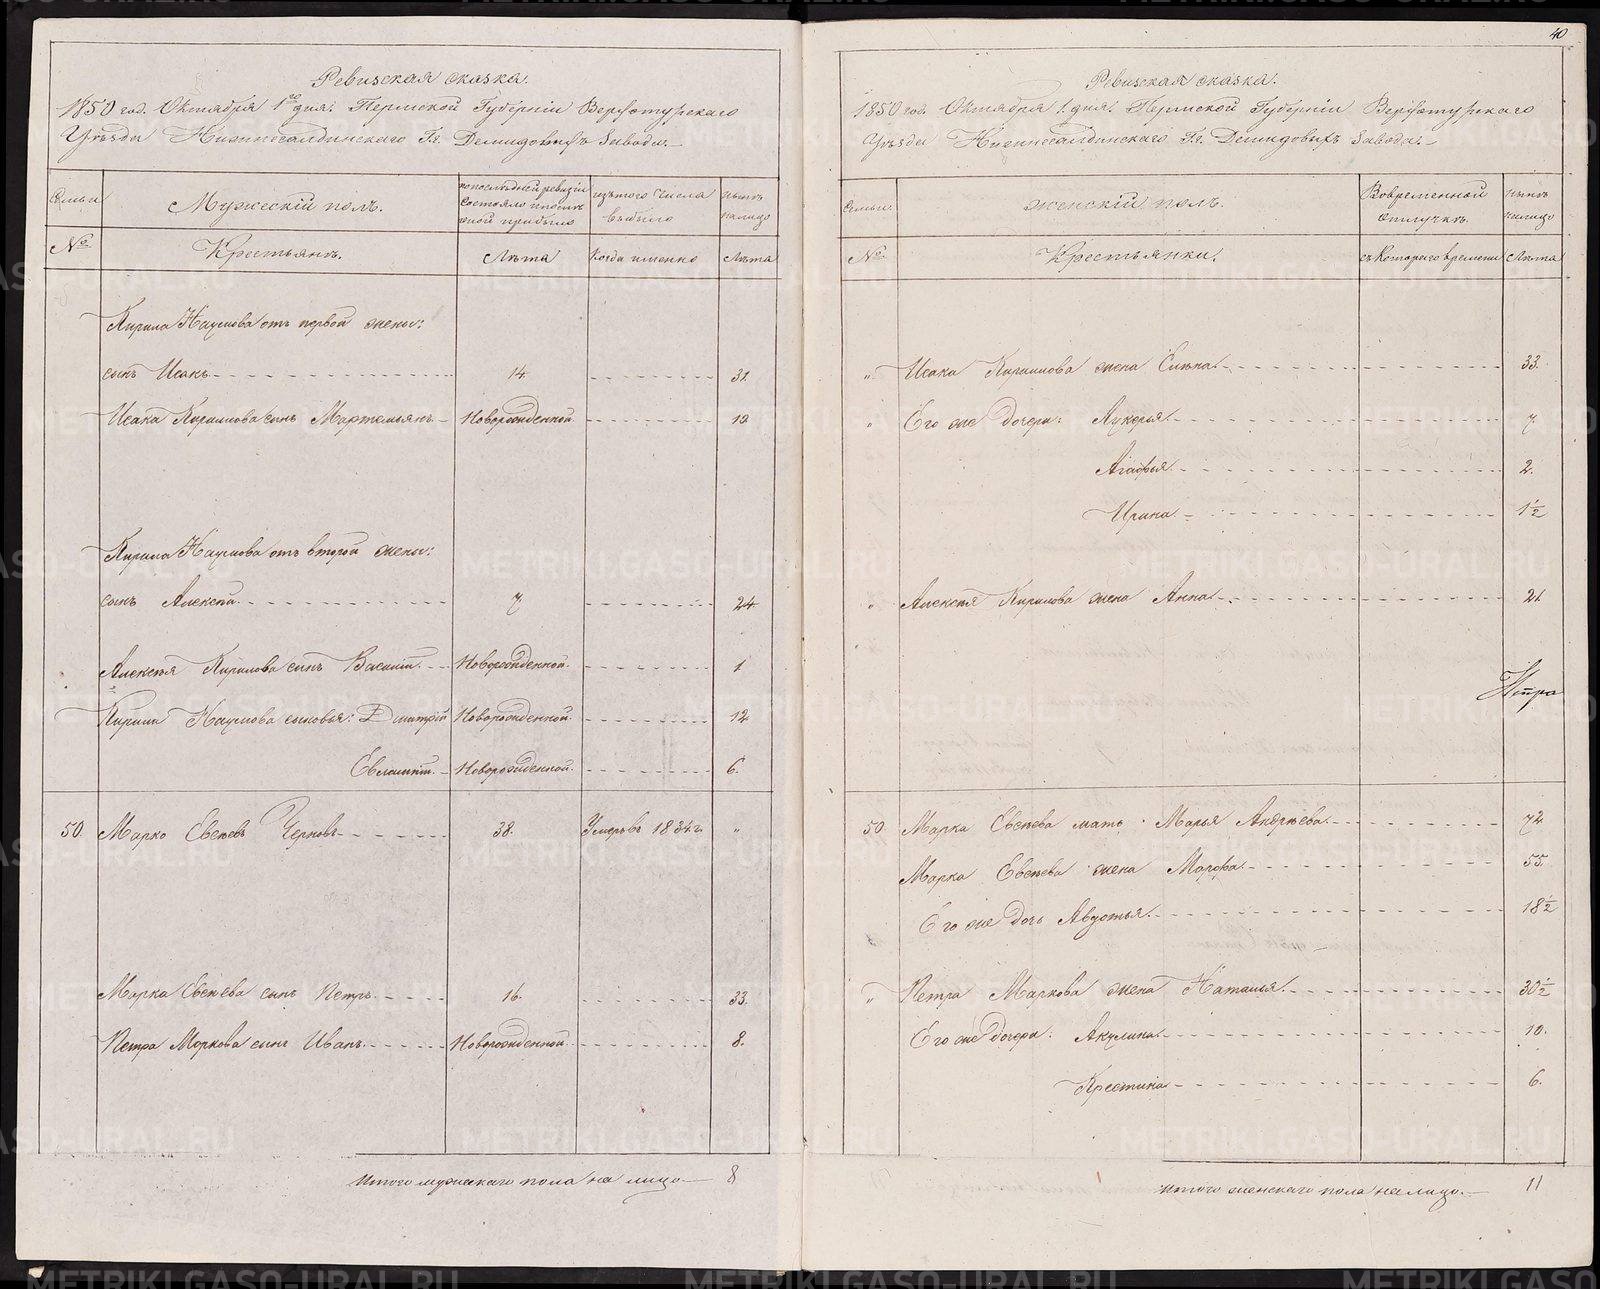 Ревизская сказка.
1850 год. Октября 1го дня: Пермской Губерніи Верхотурскаго
Уѣзда Нижнесалдинскаго Гг. Демидовыхъ Завода.
Семьи
Мужескій полъ.
по послѣдней ревизіи
состояло и послѣ
оной прибыло
изъ того числа
выбыло
нынѣ
налицо
№
Крестьянъ.
Лѣта
Когда именно
Лѣта
Кирила Наумова отъ первой жены:
сынъ Исакъ 14. 31.
Исака Кирилова сынъ Мартемьянъ Новорожденной 10.
Кирила Наумова отъ второй жены:
сынъ Алексѣй 7 24
Алексѣя Кирилова сынъ Василій Новорожденной 1
Кирила Наумова сыновья: Дмитрій Новорожденной 12
Евлампій Новорожденной 6.
50. Марко Евсѣевъ Черновъ 38. Умеръ въ 1834 г. "
Марка Евсѣева сынъ Петръ 16. 33.
Петра Маркова сынъ Иванъ Новорожденной 8.
Итого мужескаго пола на лицо 8
40
Ревизская сказка.
1850 год. Октября 1 дня: Пермской Губерніи Верхотурскаго
Уѣзда Нижнесалдинскаго Гг. Демидовыхъ Завода.
Семьи.
женскій полъ.
Вовременной
отлучкѣ.
нынѣ
налицо
№
Крестьянки.
съ Котораго времени
Лѣта
" Исака Кирилова жена Елѣна 33.
" Его же дочери: Лукерья 7.
Агафья 2.
Ирина 1½
" Алексѣя Кирилова жена Анна 21.
50. Марка Евсѣева мать Марья Андрѣева 72
Марка Евсѣева жена Марфа 55.
Его же дочь Авдотья 18½
" Петра Маркова жена Наталья 30½
Его же дочери: Акулина 10.
Крестина 6.
Итого женскаго пола налицо. 11
METRIKI.GASO-URAL.RU